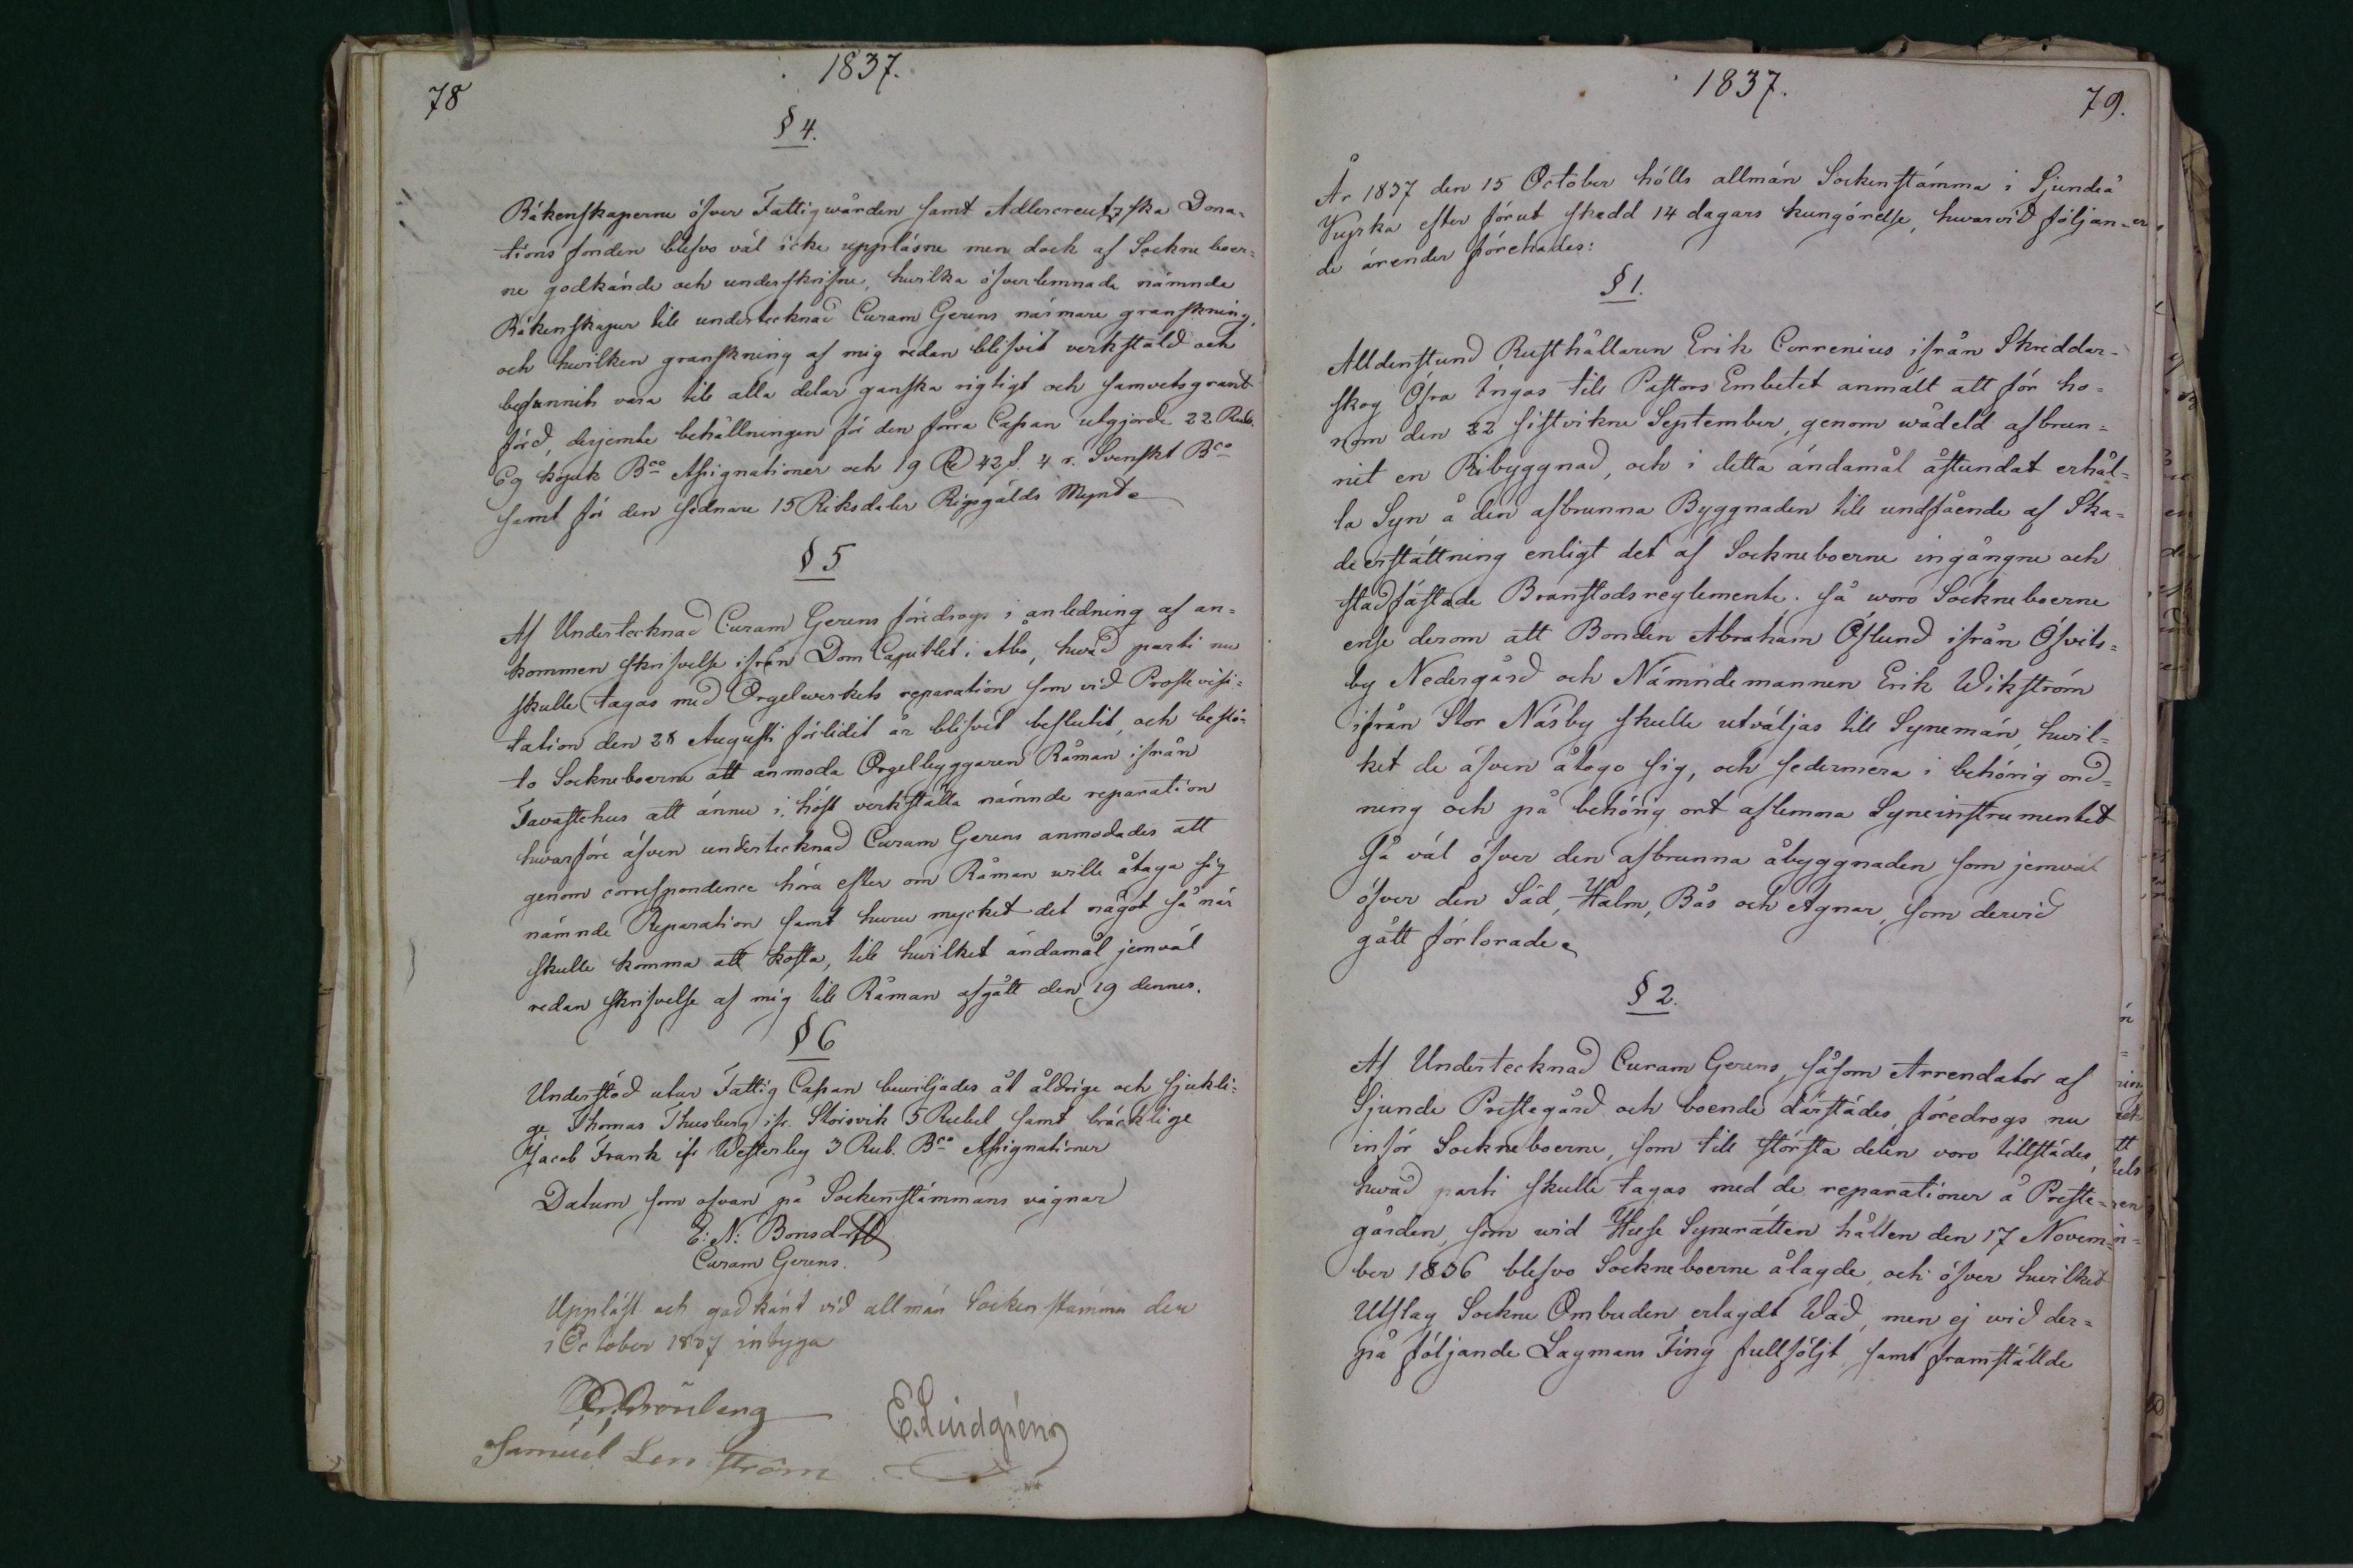 78
1837.
§ 4.
Räkenskaperne öfver Fattigwården samt Adlercreutzska Dona=
tions fonden blefvo väl icke uppläsne men dock af Sockne boer=
ne godkände och underskrifne, hwilka öfverlemnade nämnde
Räkenskaper till undertecknad Curam Gerens närmare granskning,
och hwilken granskning af mig redan blifvit verkstäld och
befunnits vara till alla delar ganska rigtigt och samvetsgrant
förd, derjemte behållningen för den förra Cassan utgjorde 22 Rub.
69 kopek Bco Assignationer och 19 Rd 42 s. 4 r. Svenskt Bco
samt för den sednare 15 Riksdaler Riksgälds Mynt.
§ 5
Af Undertecknad Curam Gerens föredrogs i anledning af an=
kommen skrifvelse ifrån Dom Capitlet i Åbo, hwad parti nu
skulle tagas med Orgelwerkets reparation som vid Proste visi=
tation den 28 Augusti förlidit år blifvit beslutit, och beslö=
to Sockneboerne att anmoda Orgelbyggaren Råman ifrån
Tavastehus att ännu i höst verkställa nämnde reparation
hwarföre äfven undertecknad Curam Gerens anmodades att
genom correspondence höra efter om Råman wille åtaga sig
nämnde Reparation samt huru mycket det något så när
skulle komma att kosta, till hwilket ändamål jemväl
redan skrifvelse af mig till Råman afgått den 19 dennes.
§ 6
Understöd utur Fattig Cassan bewiljades åt åldrige och sjukli=
ge Thomas Thusberg ifr. Störsvik 5 Rubel samt bräcklige
Jacob Frank ifr Westerby 3 Rub. Bco Assignationer
Datum som ofvan på Sockenstämmans vägnar
E: N: Bonsdorff
Curam Gerens.
Uppläst och godkänt vid allmän Socken stämma den
1 October 1837 intyga
E. Lindgrén
Samuel Lenström
1837.
79.
År 1837 den 15 October hölls allmän Sockenstämma i Sjundeå
Kyrka efter förut skedd 14 dagars kungörelse, hwarvid följan=
de ärender förehades:
§ 1.
Alldenstund Rusthållaren Erik Correnius ifrån Skreddar-
skog Öfra Ingas till Pastors Embetet anmält att för ho=
nom den 22 sistvikne September, genom wådeld afbrun=
nit en Ribyggnad, och i detta ändamål åstundat erhål=
la Syn å den afbrunna Byggnaden till undfående af Ska=
deersättning enligt det af Sockneboerne ingångne och
stadfästade Branstodsreglemente. så woro Sockneboerne
ense derom att Bonden Abraham Öslund ifrån Öfvits=
by Nedergård och Nämndemannen Erik Wikström
ifrån Stor Näsby skulle utväljas till Synemän, hwil=
ket de äfven åtogo sig, och sedermera i behörig ord=
ning och på behörig ort aflemna Syneinstrumentet
så väl öfver den afbrunna åbyggnaden som jemväl
öfver den Säd, Halm, Bås och Agnar, som dervid
gått förlorade.
§ 2.
Af Undertecknad Curam Gerens, såsom Arrendator af
Sjunde Prestegård och boende därstädes, föredrogs nu
inför Sockneboerne, som till största delen voro tillstädes,
hwad parti skulle tagas med de reparationer å Preste=
gården, som wid Huse Synerätten hållen den 17 Novem=
ber 1836 blefvo Sockneboerne ålagde, och öfver hwilket
Utslag Sockne Ombuden erlagdt Wad, men ej wid der=
på följande Lagmans Ting fullföljt, samt framställde